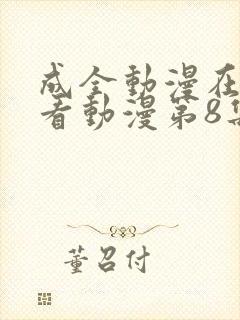 成全動漫在
看動漫第8集
董召付